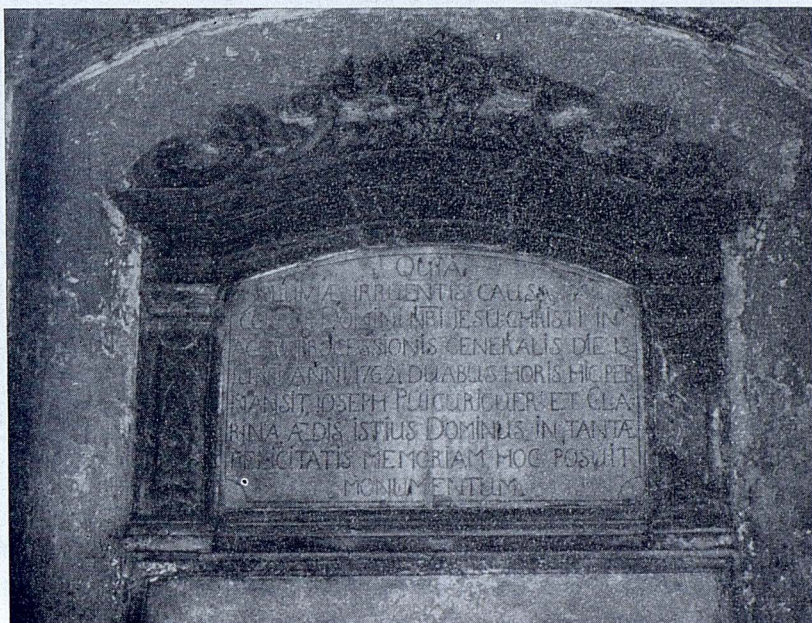 QUIA
IRRUENTIS CAUSA
DOMINI NRI JESU-CHRISTI IN
PROCESSIONIS GENERALIS DIE 13
ANNI 1762, DUABUS HORIS HIC PER
MANSIT, JOSEPH PUIGURIGUER ET CLA-
RINA ÆDIS ISTIUS DOMINUS IN TANTÆ
MEMORIAM HOC POSUIT
MONUMENTUM.